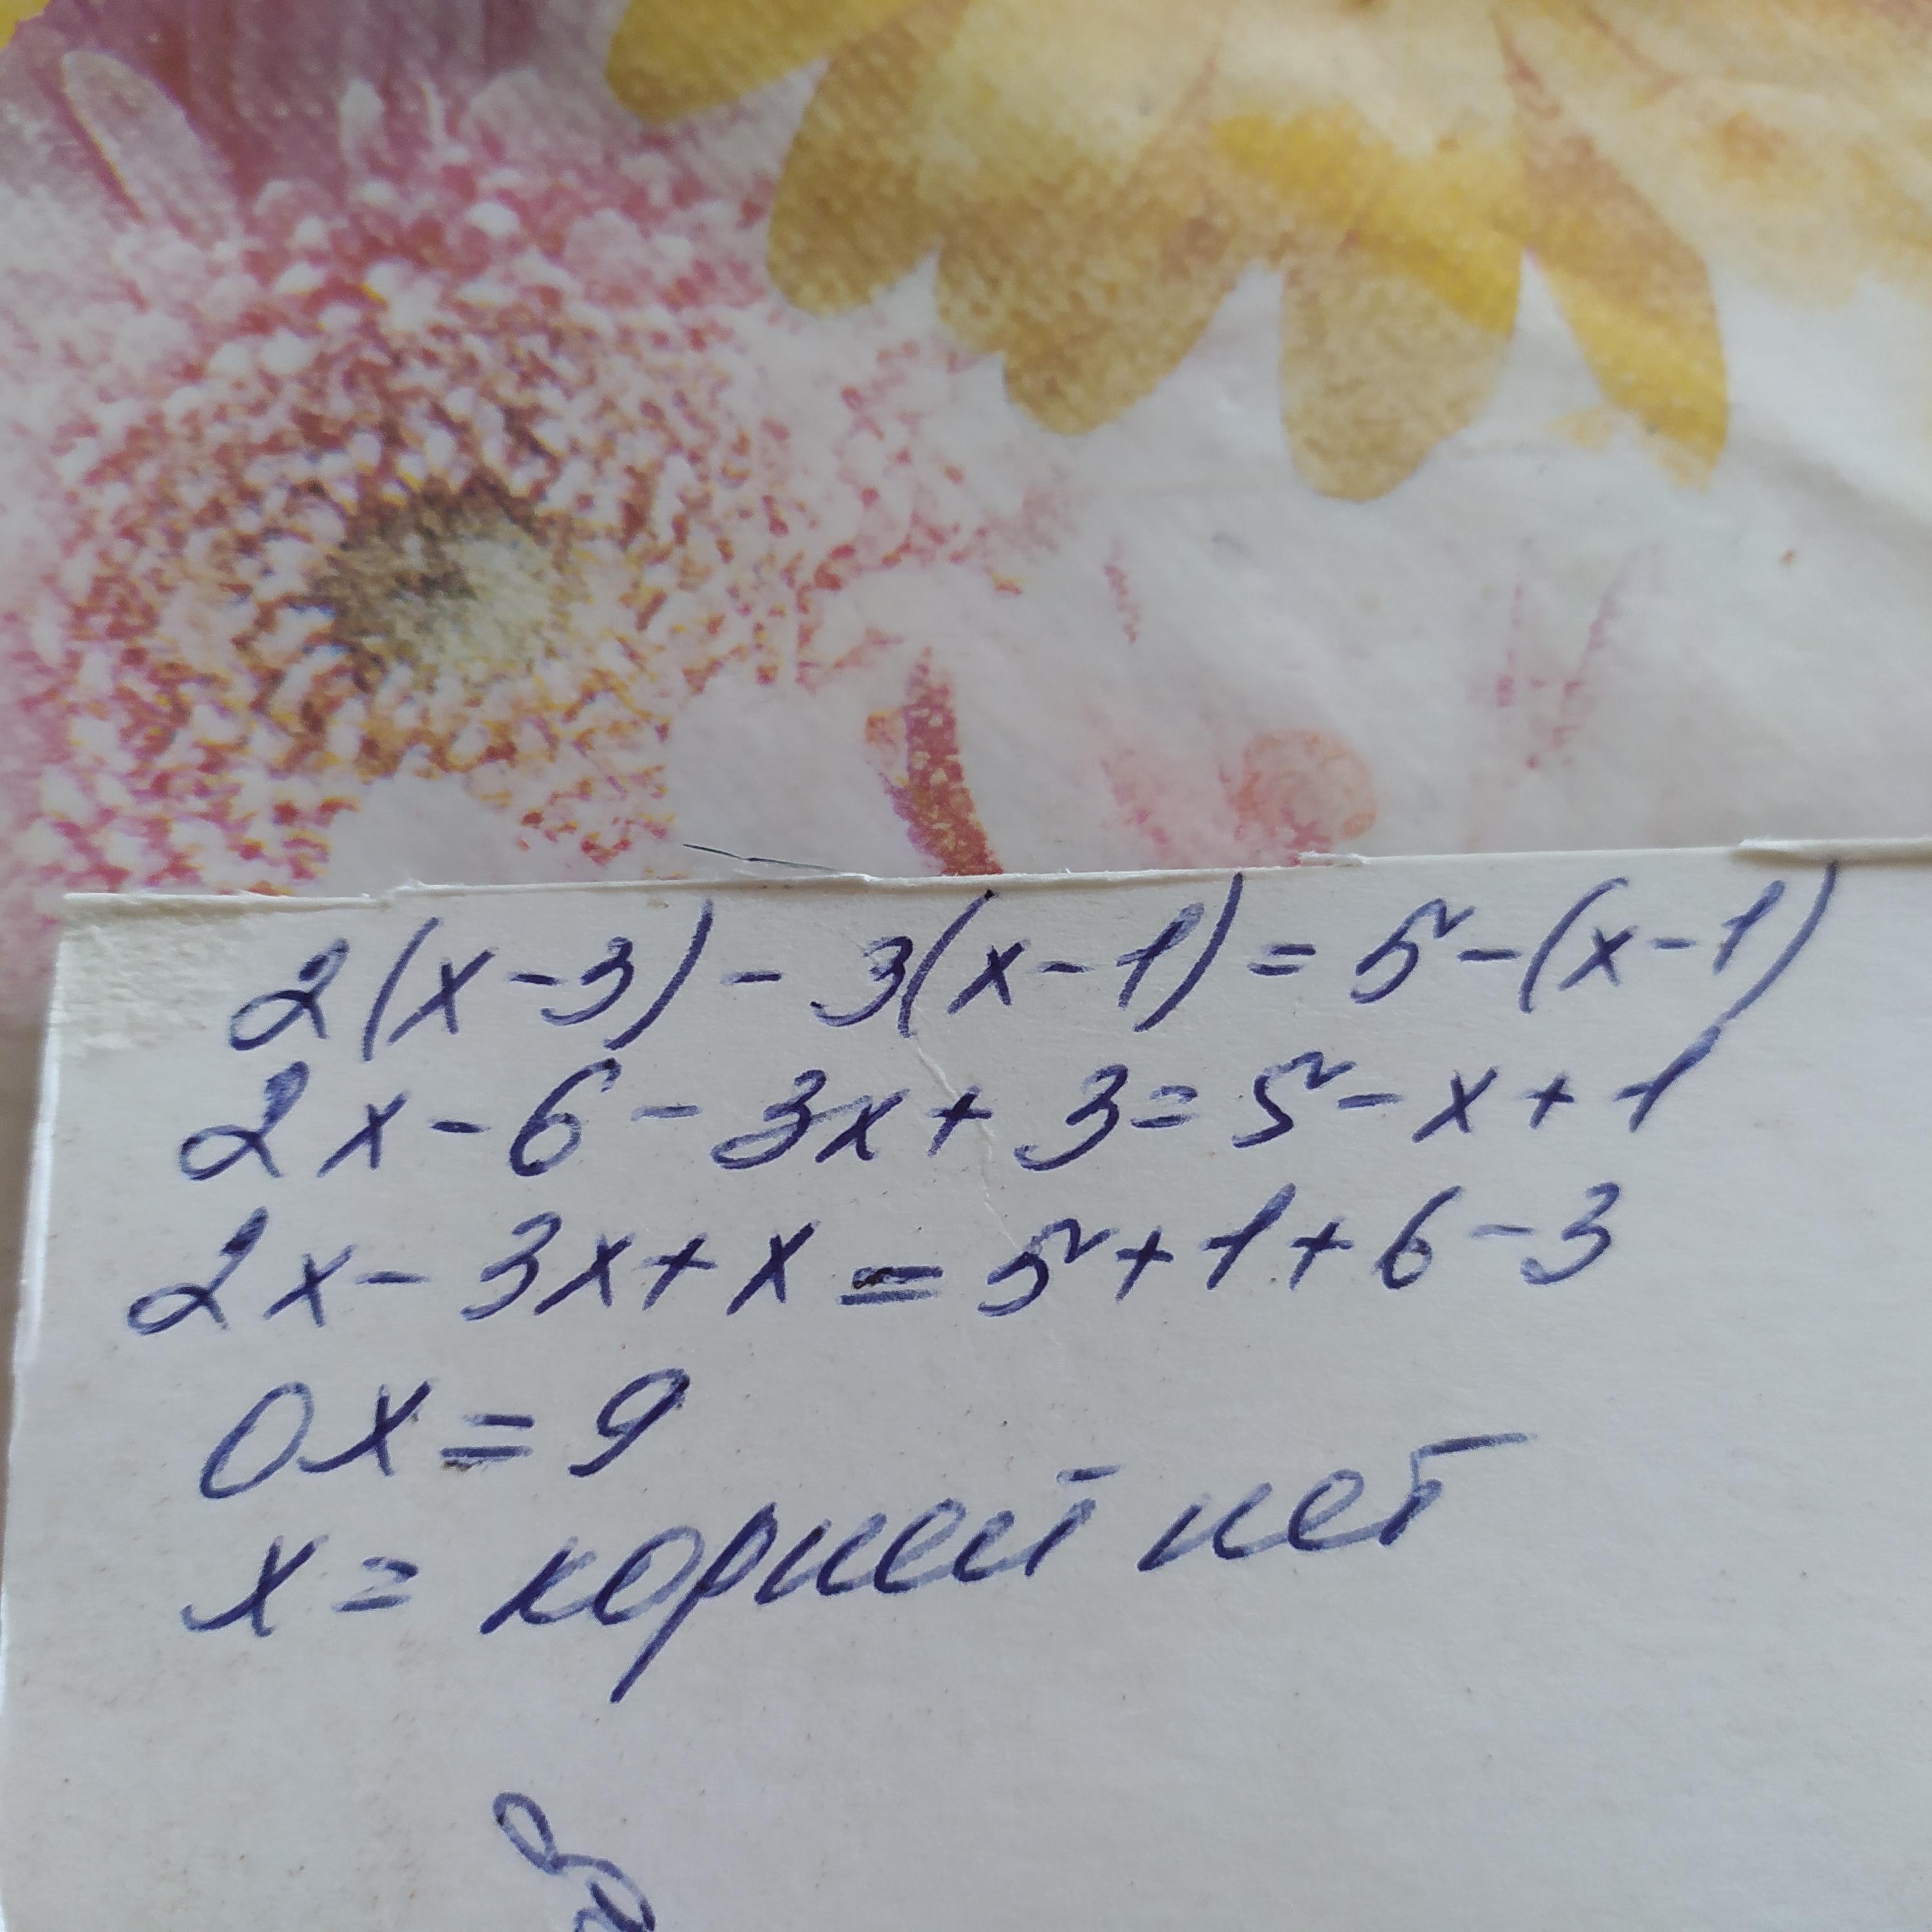 2(x-3)-3(x-1)=5-(x-1)
2x-6-3x+3=5-x+1
2x-3x+x=5+1+6-3
0x=9
x= корней нет